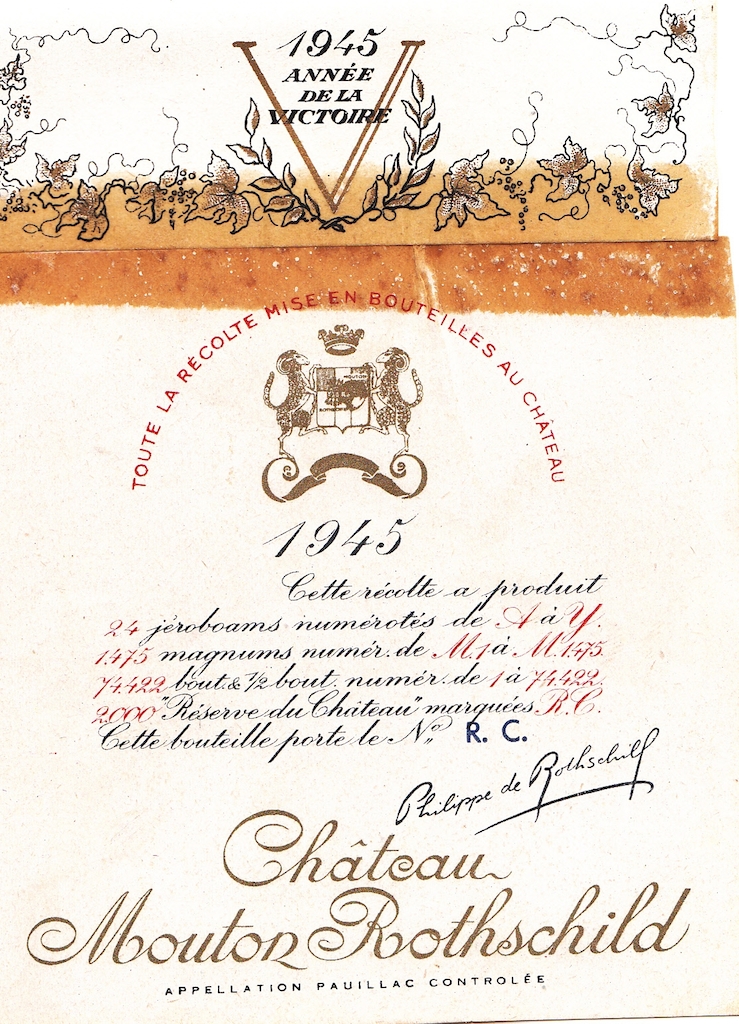 1945
ANNÉE
DE LA
VICTOIRE
TOUTE LA RÉCOLTE MISE EN BOUTEILLES AU CHÂTEAU
MOUTON
1945
Cette récolte a produit
24 jéroboams numérotés de A à Y.
1.475 magnums numér. de M.1 à M.1.475.
74.422 bout. & 1/2 bout. numér. de 1 à 74.422.
2.000 "Réserve du Château" marquées R.C.
Cette bouteille porte le No R. C.
Philippe de Rothschild
Château
Mouton Rothschild
APPELLATION PAUILLAC CONTROLÉE